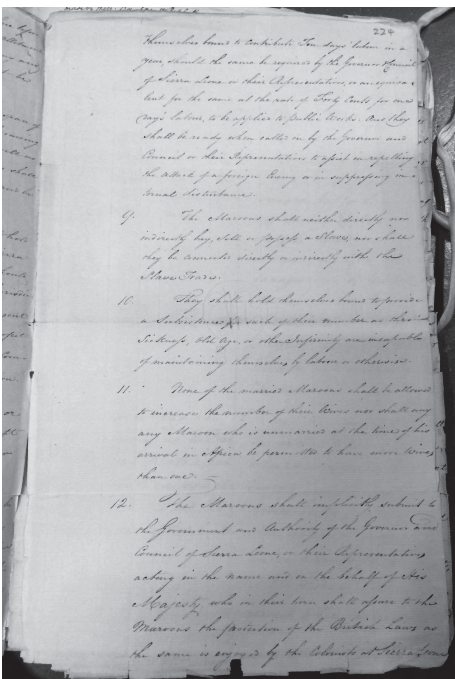 224
themselves bound to contribute Ten days labour in a
year, should the same be required by the Governor & Council
of Sierra Leone or their Representatives, or an equiva-
lent for the same at the rate of Forty Cents for one
day's labour, to be applied to public Works. And they
shall be ready when called on by the Governor and
Council or their Representatives to assist in repelling
the attack of a foreign Enemy or in suppressing in=
ternal disturbance.
9. The Maroons shall neither directly nor
indirectly buy, sell or possess a Slave, nor shall
they be connected directly or indirectly with the
Slave Trade.
10. They shall hold themselves bound to provide
a Subsistence for such of their number as their
Sickness, Old Age, or other Infirmity are incapable
of maintaining themselves by labour or otherwise.
11. None of the married Maroons shall be allowed
to increase the number of their Wives nor shall any
any Maroon who is unmarried at the time of his
arrival in Africa be permitted to have more Wives
than one.
12. The Maroons shall implicitly submit to
the Government and Authority of the Governor and
Council of Sierra Leone, or their Representatives
acting in the name and on the behalf of His
Majesty, who in their turn shall assure to the
Maroons the protection of the British Laws as
the same is enjoyed by the Colonists at Sierra Leone